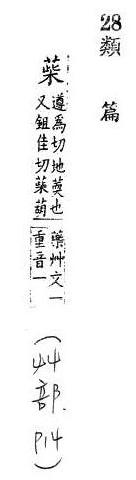 28 類篇
茈
遵為切地蓃也
又鉏佳切茈葫
藥艸文一
重音一
(艸部. P14)